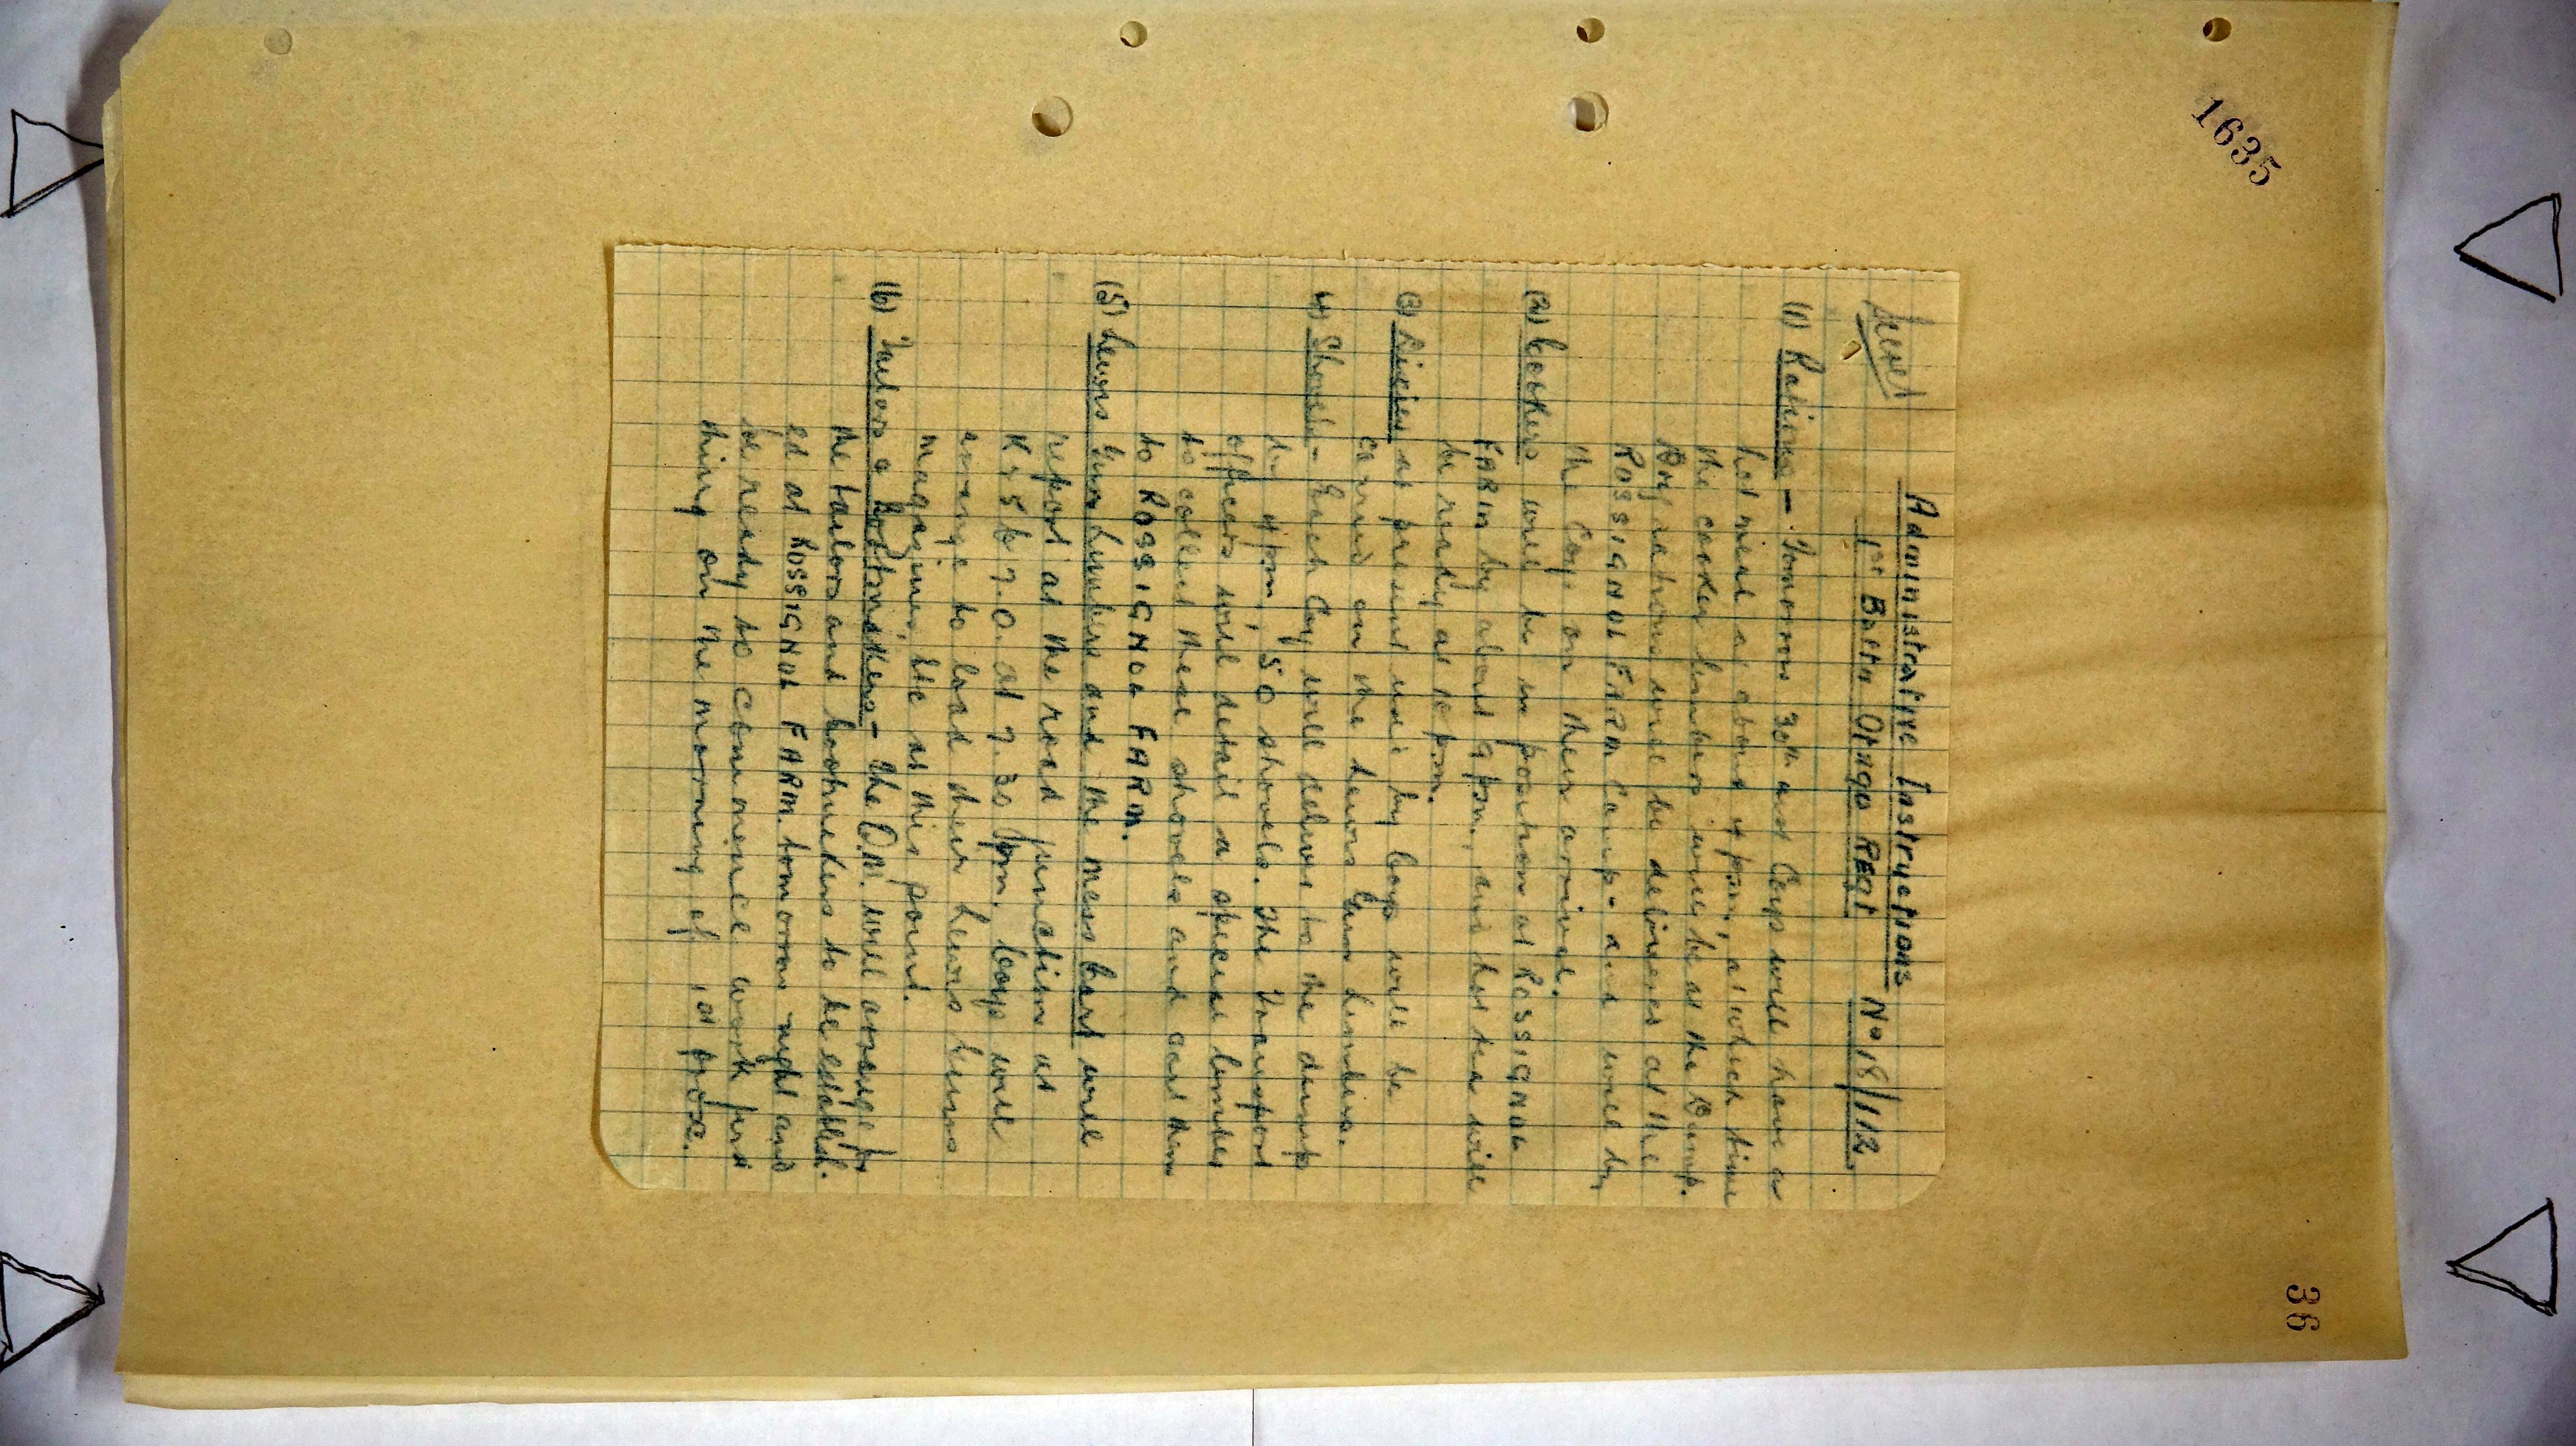 1635
36
Secret
Administrative Instructions
1st Battn Otago Regt No 18/112.
(1) Rations - Tomorrow 30th inst Coys will have a
hot meal at about 4 pm, at which time
the cooker limbers will be at the Dump.
Dry rations will be delivered at the
ROSSIGNOL FARM Camp and used by
the Coys on their arrival.
(2) Cookers will be in position at ROSSIGNOL
FARM by about 9 pm, and hot tea will
be ready at 10 pm.
(3) Dixies at present used by Coys will be
carried on the Lewis Gun Limbers.
(4) Shovels - Each Coy will deliver to the dump
by 4 pm, 50 shovels. The Transport
officers will detail a special limber
to collect these shovels and cart them
to ROSSIGNOL FARM.
(5) Lewis Gun Limbers and the mess Cart will
report at the road junction at
K 5 b 7.0. at 7.30 pm. Coys will
arrange to load their Lewis Guns
magazines, etc at this point.
(6) Tailors & Bootmakers - The Q.M. will arrange for
the tailors and bootmakers to be establish-
ed at ROSSIGNOL FARM tomorrow night and
be ready to commence work first
thing on the morning of 1st prox.